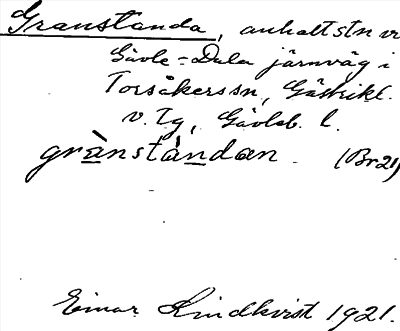 Granstanda, anhaltstn vr
Gävle-Dala järnväg i
Torsåkerssn, Gästrikl.
v. Tg, Gävleb. l.
grànstàndan. (Br21)
Einar Lindkvist 1921.